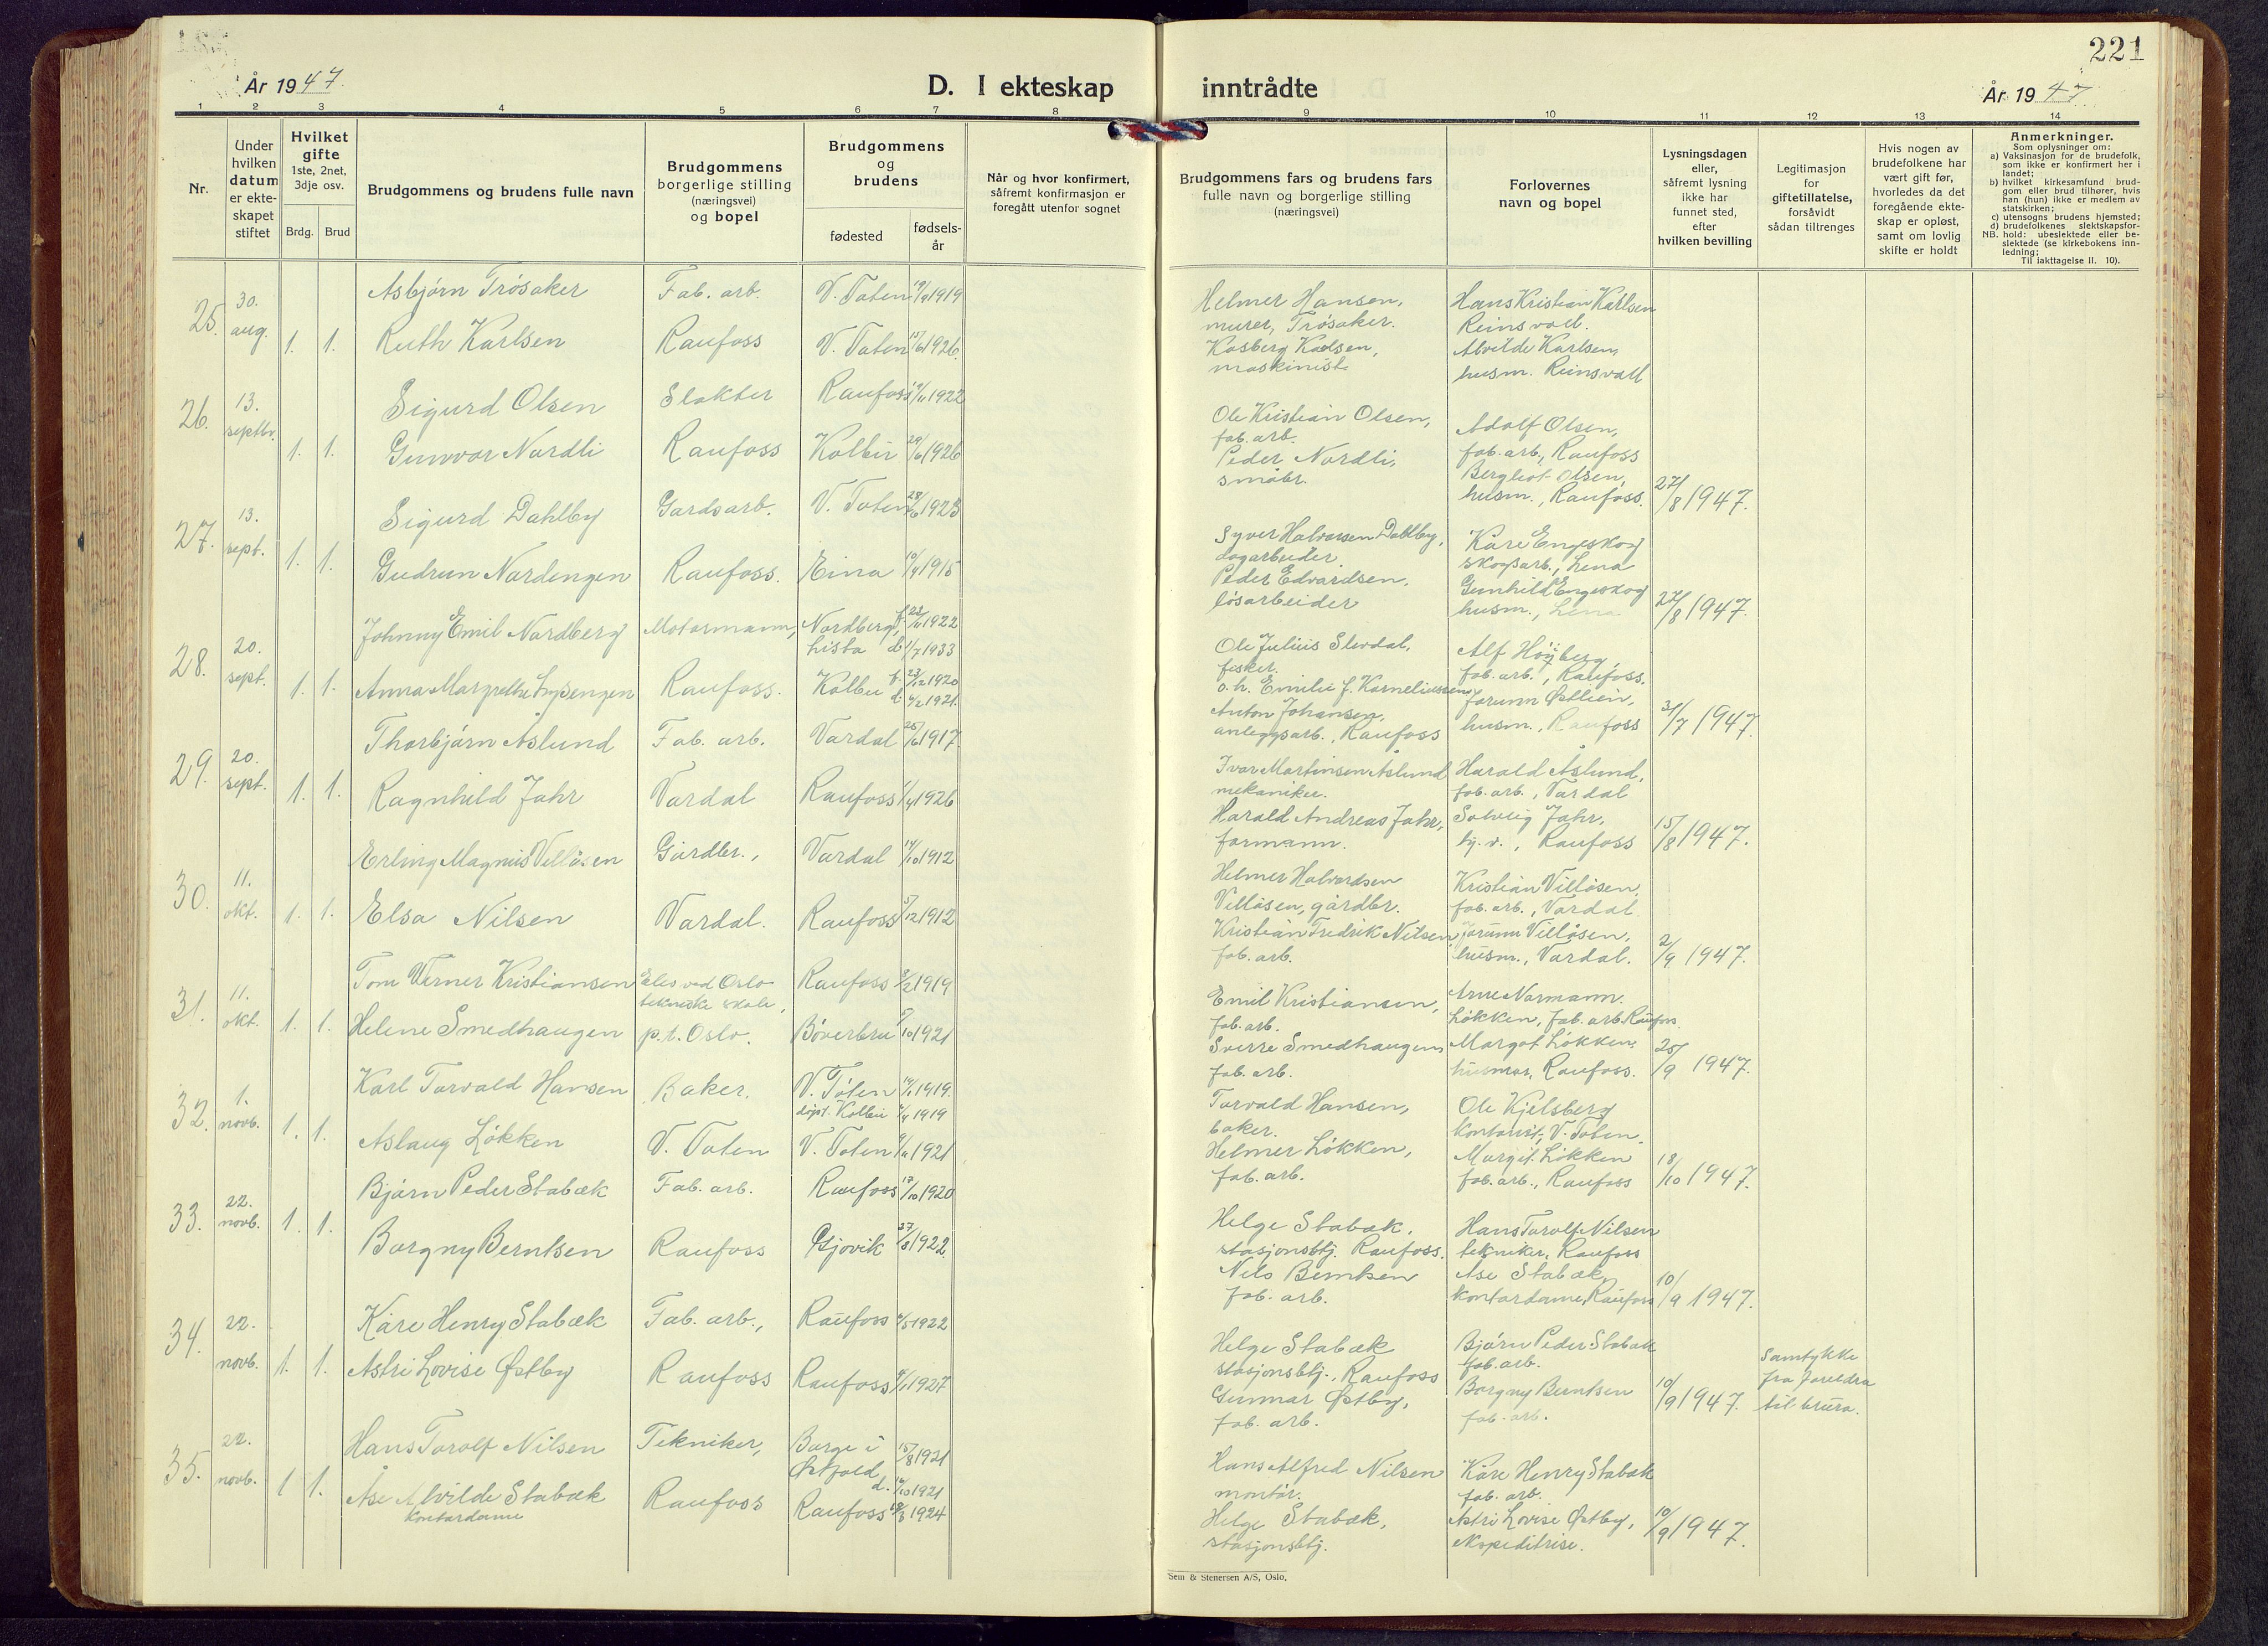 221
År 1947.
D. I ekteskap inntrådte
År 1947
1 2 3 4 5 6 7 8 9 10 11 12 13 14
Nr.
Under hvilken datum er ekte-skapet stiftet
Hvilket gifte 1ste, 2net, 3dje osv.
Brdg. Brud
Brudgommens og brudens fulle navn
Brudgommens borgerlige stilling (næringsvei) og bopel
Brudgommens og brudens
fødested
fødsels-år
Når og hvor konfirmert, såfremt konfirmasjon er foregått utenfor sognet
Brudgommens fars og brudens fars fulle navn og borgerlige stilling (næringsvei)
Forlovernes navn og bopel
Lysningsdagen eller, såfremt lysning ikke har funnet sted, efter hvilken bevilling
Legitimasjon for giftetillatelse, forsåvidt sådan tiltrenges
Hvis nogen av brudefolkene har vært gift før, hvorledes da det foregående ekte-skap er opløst, samt om lovlig skifte er holdt
Anmerkninger.
Som oplysninger om:
a) Vaksinasjon for de brudefolk, som ikke er konfirmert her i landet;
b) hvilket kirkesamfund brud-gom eller brud tilhører, hvis han (hun) ikke er medlem av statskirken;
c) utensogns brudens hjemsted;
d) brudefolkenes slektskapsfor-hold: ubeslektede eller be-slektede (se kirkebokens inn-ledning;
NB.
Til iakttagelse II. 10).
25. 30. aug. 1. 1.
Asbjørn Trøsaker Fab. arb. V. Toten 1919
Ruth Karlsen Raufoss V. Toten 15/6 1926.
Helmer Hansen,
murer, Trøsaker.
Kasberg Karlsen,
maskinist
Hans Kristian Karlsen
Reinsvoll.
Alvilde Karlsen,
husm. Reinsvoll
26. 13. septbr. 1. 1.
Sigurd Olsen Slakter Raufoss 1922
Gunvor Nordli Raufoss Kolbu 29/6 1926
Ole Kristian Olsen,
fab. arb.
Peder Nordli,
småbr.
Adolf Olsen,
fab. arb., Raufoss
Bergliot Olsen,
husm., Raufoss.
27/8 1947.
27. 13. sept. 1. 1.
Sigurd Dahlby Gardsarb. V. Toten 1923
Gudrun Nordengen Raufoss. Eina 10/4 1915
Syver Halvorsen Dahlby,
dagarbeider.
Peder Edvardsen,
løsarbeider
Kåre Engeskog
skogsarb., Lena
Gunhild Engeskog
husm., Lena
27/8 1947.
28. 20. sept. 1. 1.
Johnny Emil Nordberg Motormann, Nordberg, f. 1922
Lista d. 1/7 1933
Anna Margrethe Raufoss. Kolbu f. 23/12 1920
d. 6/2 1921.
Ole Julius Slevdal,
fisker.
o. h. Emilie f. Korneliussen
Anton Johansen,
anleggsarb., Raufoss
Alf Höyberg,
fab. arb., Raufoss.
Jorunn Østlien,
husm., Raufoss
31/7 1947.
29. 20. sept. 1. 1.
Thorbjørn Åslund Fab. arb. Vardal 25/6 1917
Ragnhild Jahr Vardal Raufoss 1/4 1926
Ivar Martinsen Åslund
mekaniker.
Harald Andreas Jahr,
formann.
Harald Åslund,
fab. arb., Vardal
Solveig Jahr,
hj. v., Raufoss
15/8 1947.
30. 11. okt. 1. 1.
Erling Magnus Villåsen Gårdbr., Vardal 14/10 1912
Elsa Nilsen Vardal. Raufoss 5/12 1912
Helmer Halvordsen
Villåsen, gårdbr.
Kristian Fredrik Nilsen
fab. arb.
Kristian Villåsen,
fab. arb., Vardal.
Jorunn Villåsen,
husm., Vardal.
2/9 1947.
31. 11. okt. 1. 1.
Tom Werner Kristiansen Elev ved Oslo Raufoss 3/2 1919
tekniske skole,
Helene Smedhaugen p.t. Oslo. Bøverbru 10 1921
Emil Kristiansen,
fab. arb.
Sverre Smedhaugen
fab. arb.
Arne Normann.
Løkken, fab. arb. Raufoss
Margot Løkken.
husmor, Raufoss.
25/9 1947.
32. 1. novb. 1. 1.
Karl Torvald Hansen Baker. V. Toten 1919.
døpt Kolbu 1919
Aslaug Løkken V. Toten V. Toten 1921
Torvald Hansen,
baker.
Helmer Løkken,
fab. arb.
Ole Kjelsberg
kontorist, V. Toten.
Margit Løkken
fab. arb., Raufoss
18/10 1947.
33. 22. novb. 1. 1.
Bjørn Peder Stabæk Fab. arb. Raufoss 17/10 1920
Borgny Berntsen Raufoss Gjøvik 27/8 1922.
Helge Stabæk,
stasjonsbtj. Raufoss.
Nils Berntsen
fab. arb.
Hans Torolf Nilsen
tekniker, Raufoss
Åse Stabæk,
kontordame, Raufoss
10/9 1947.
34. 22. novb. 1. 1.
Kåre Henry Stabæk Fab. arb., Raufoss 1922
Astri Lovise Østby Raufoss Raufoss 1927
Helge Stabæk
stasjonsbtj., Raufoss
Gunnar Østby,
fab. arb.
Bjørn Peder Stabæk
fab. arb.
Borgny Berntsen
fab. arb.
10/9 1947.
Samtykke
fra foreldra
til brura.
35. 22. novb. 1 1.
Hans Torolf Nilsen Tekniker, Borge i 15/8 1921
Østfold d. 10 1921
Åse Alvilde Stabæk Raufoss Raufoss 18/3 1924
kontordame
Hans Alfred Nilsen
montør.
Helge Stabæk,
stasjonsbtj.
Kåre Henry Stabæk
fab. arb.
Astri Lovise Østby,
ekspeditrise.
10/9 1947.
Sem & Stenersen A/S, Oslo.